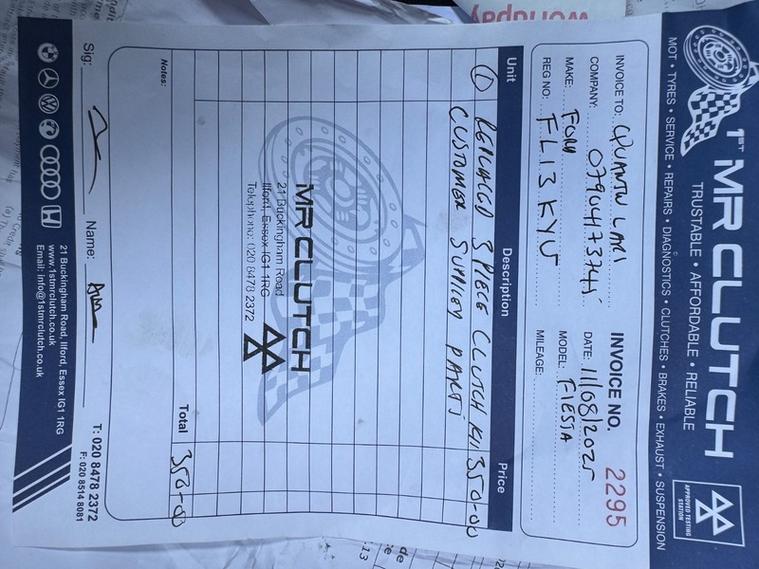 1ST MR CLUTCH
TRUSTABLE • AFFORDABLE • RELIABLE
APPROVED TESTING STATION
MOT • TYRES • SERVICE • REPAIRS • DIAGNOSTICS • CLUTCHES • BRAKES • EXHAUST • SUSPENSION
INVOICE TO: INVOICE NO. 2295
COMPANY: DATE: 11/08/2025
MAKE: FORD MODEL: FIESTA
REG NO: FL13 KYU MILEAGE:
Unit Description Price
① REPLACED 3 PIECE CLUTCH KIT 350-00
CUSTOMER SUPPLEY PARTS
MR CLUTCH
21 Buckingham Road
Ilford, Essex IG1 1RG
Telephone: 020 8478 2372
Total 350-00
Notes:
Sig: Name:
T: 020 8478 2372
F: 020 8514 8081
21 Buckingham Road, Ilford, Essex IG1 1RG
www.1stmrclutch.co.uk
Email: info@1stmrclutch.co.uk